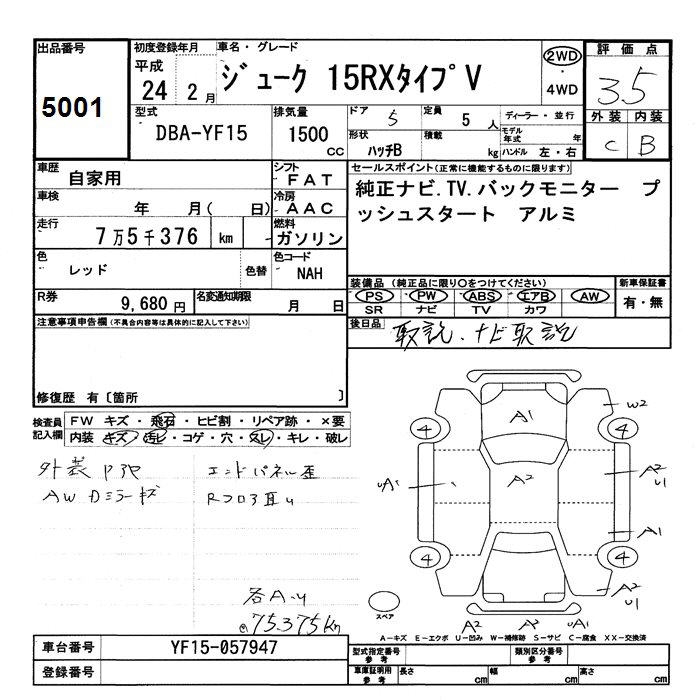 出品番号
5001
初度登録年月
平成
24 2 月
車名・グレード
ジューク 15RXタイプV
2WD
・
4WD
評価点
3.5
外装 内装
C B
型式
DBA-YF15
排気量
1500
CC
ドア 5
定員 5 人
ディーラー・並行
形状 ハッチB
積載 kg
モデル年式 年
ハンドル 左・右
車歴
自家用
シフト
FAT
車検
年 月( 日)
冷房
AAC
走行
7万5千376 km
燃料
ガソリン
色
レッド
色替
色コード
NAH
セールスポイント(正常に機能するものに限ります)
純正ナビ.TV.バックモニター プ
ッシュスタート アルミ
装備品 (純正品に限り○をつけてください)
PS PW ABS エアB AW
SR ナビ TV カワ
新車保証書
有・無
R券
9,680 円
名変通知期限
月 日
後日品
取説.ナビ取説
注意事項申告欄(不具合内容等は具体的に記入して下さい)
修復歴 有〔箇所 〕
検査員
記入欄
FW キズ・飛石・ヒビ割・リペア跡・×要
内装 キズ・汚レ・コゲ・穴・スレ・キレ・破レ
エンドパネル歪
各A.U
75.375km
A1
W2
4
4
A2
A2
U1
UA1
A1
4
4
A2
U1
スペア
A2
UA1
A-キズ E-エクボ U-凹み W-補修跡 S-サビ C-腐食 XX-交換済
車台番号
YF15-057947
登録番号
型式指定番号
参考
類別区分番号
参考
車庫証明用
参考
長さ cm
幅 cm
高さ cm